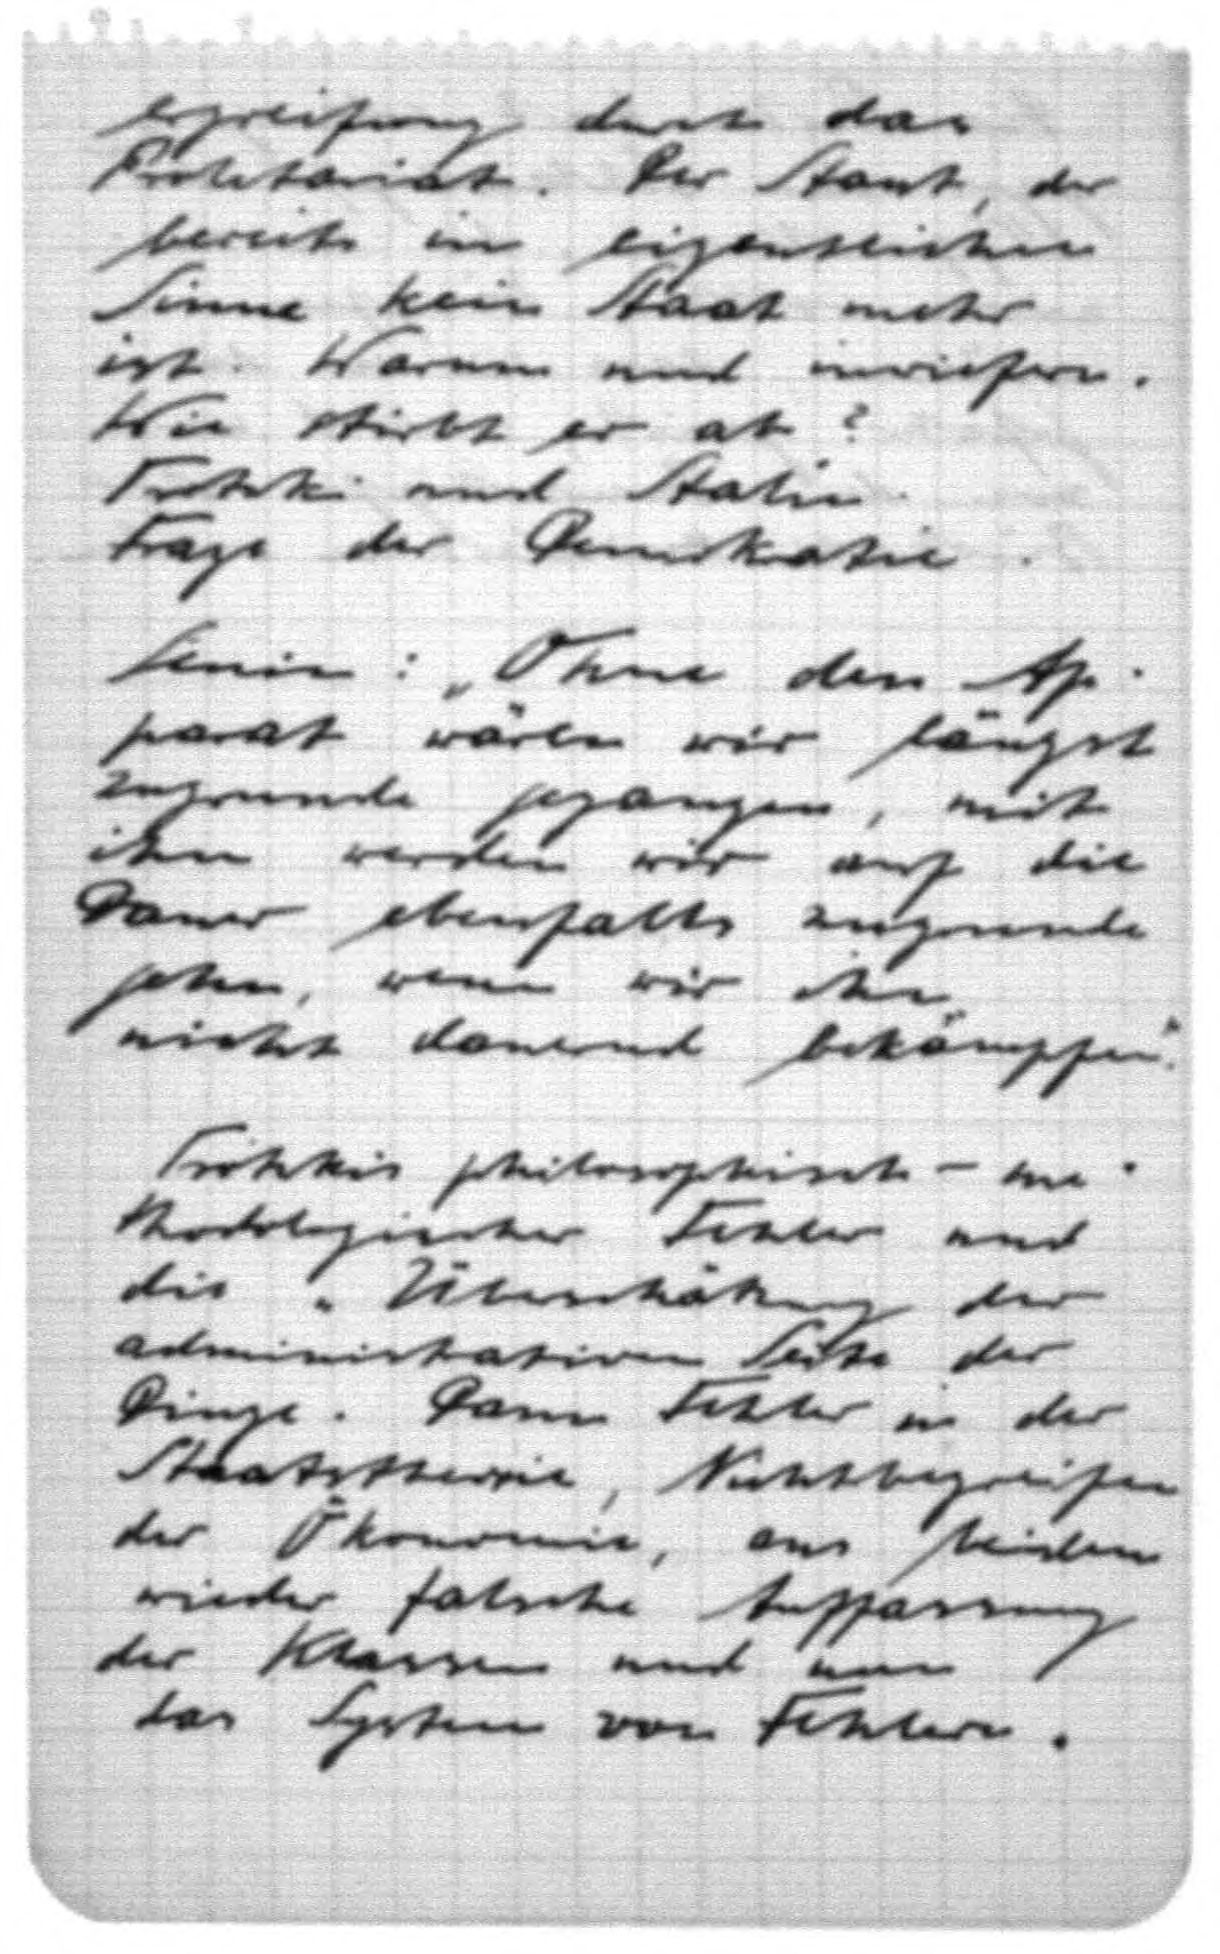 ergreifung durch das
Proletariat. Der Staat, der
bereits im eigentlichen
Sinne kein Staat mehr
ist. Warum und inwiefern.
Wie stirbt er ab?
Trotzki und Stalin.
Frage der Demokratie.
Lenin: „Ohne den Ap-
parat wären wir längst
zugrunde gegangen, mit
ihm werden wir auf die
Dauer ebenfalls zugrunde
gehen, wenn wir ihn
nicht dauernd bekämpfen".
Trotzkis philosophisch-me-
thodologischer Fehler und
die „Überschätzung der
administrativen Seite der
Dinge. Dann Fehler in der
Staatstheorie, Nichtbegreifen
der Ökonomie, aus beiden
wieder falsche Auffassung
der Klassen und nun
das System von Fehlern.